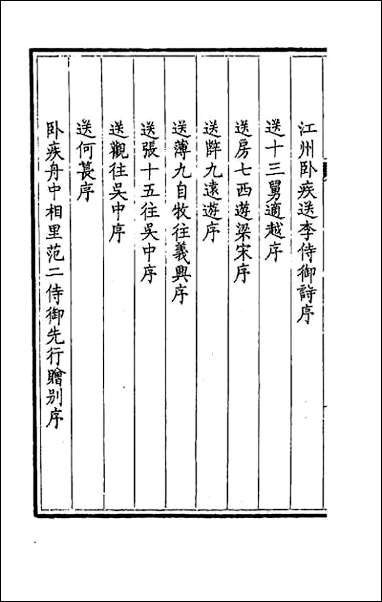 江州卧疾送李侍御詩序
送十三舅適越序
送房七西遊梁宋序
送薛九遠遊序
送薄九自牧往義興序
送張十五往吳中序
送觀往吳中序
送何萇序
卧疾舟中相里范二侍御先行贈別序